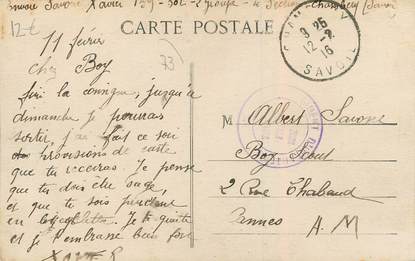 Savoie Xavier 159 2e Groupe 4e Section Chambéry (Savoie)
CARTE POSTALE
12€
73
CHAMBERY
9 25
12 - 2
16
SAVOIE
11 février
Cher Boy
fini la consigne, jusqu'à
dimanche je pourrais
sortir, j'ai fait ce soir
provisions de carte
que tu recevras. Je pense
que tu dois être sage,
et que tu sois prudent
en Je te quitte
et je t'embrasse bien fort
Xavier
M Albert Savone
Boy Scout
2 Rue Chabaud
Cannes
A. M